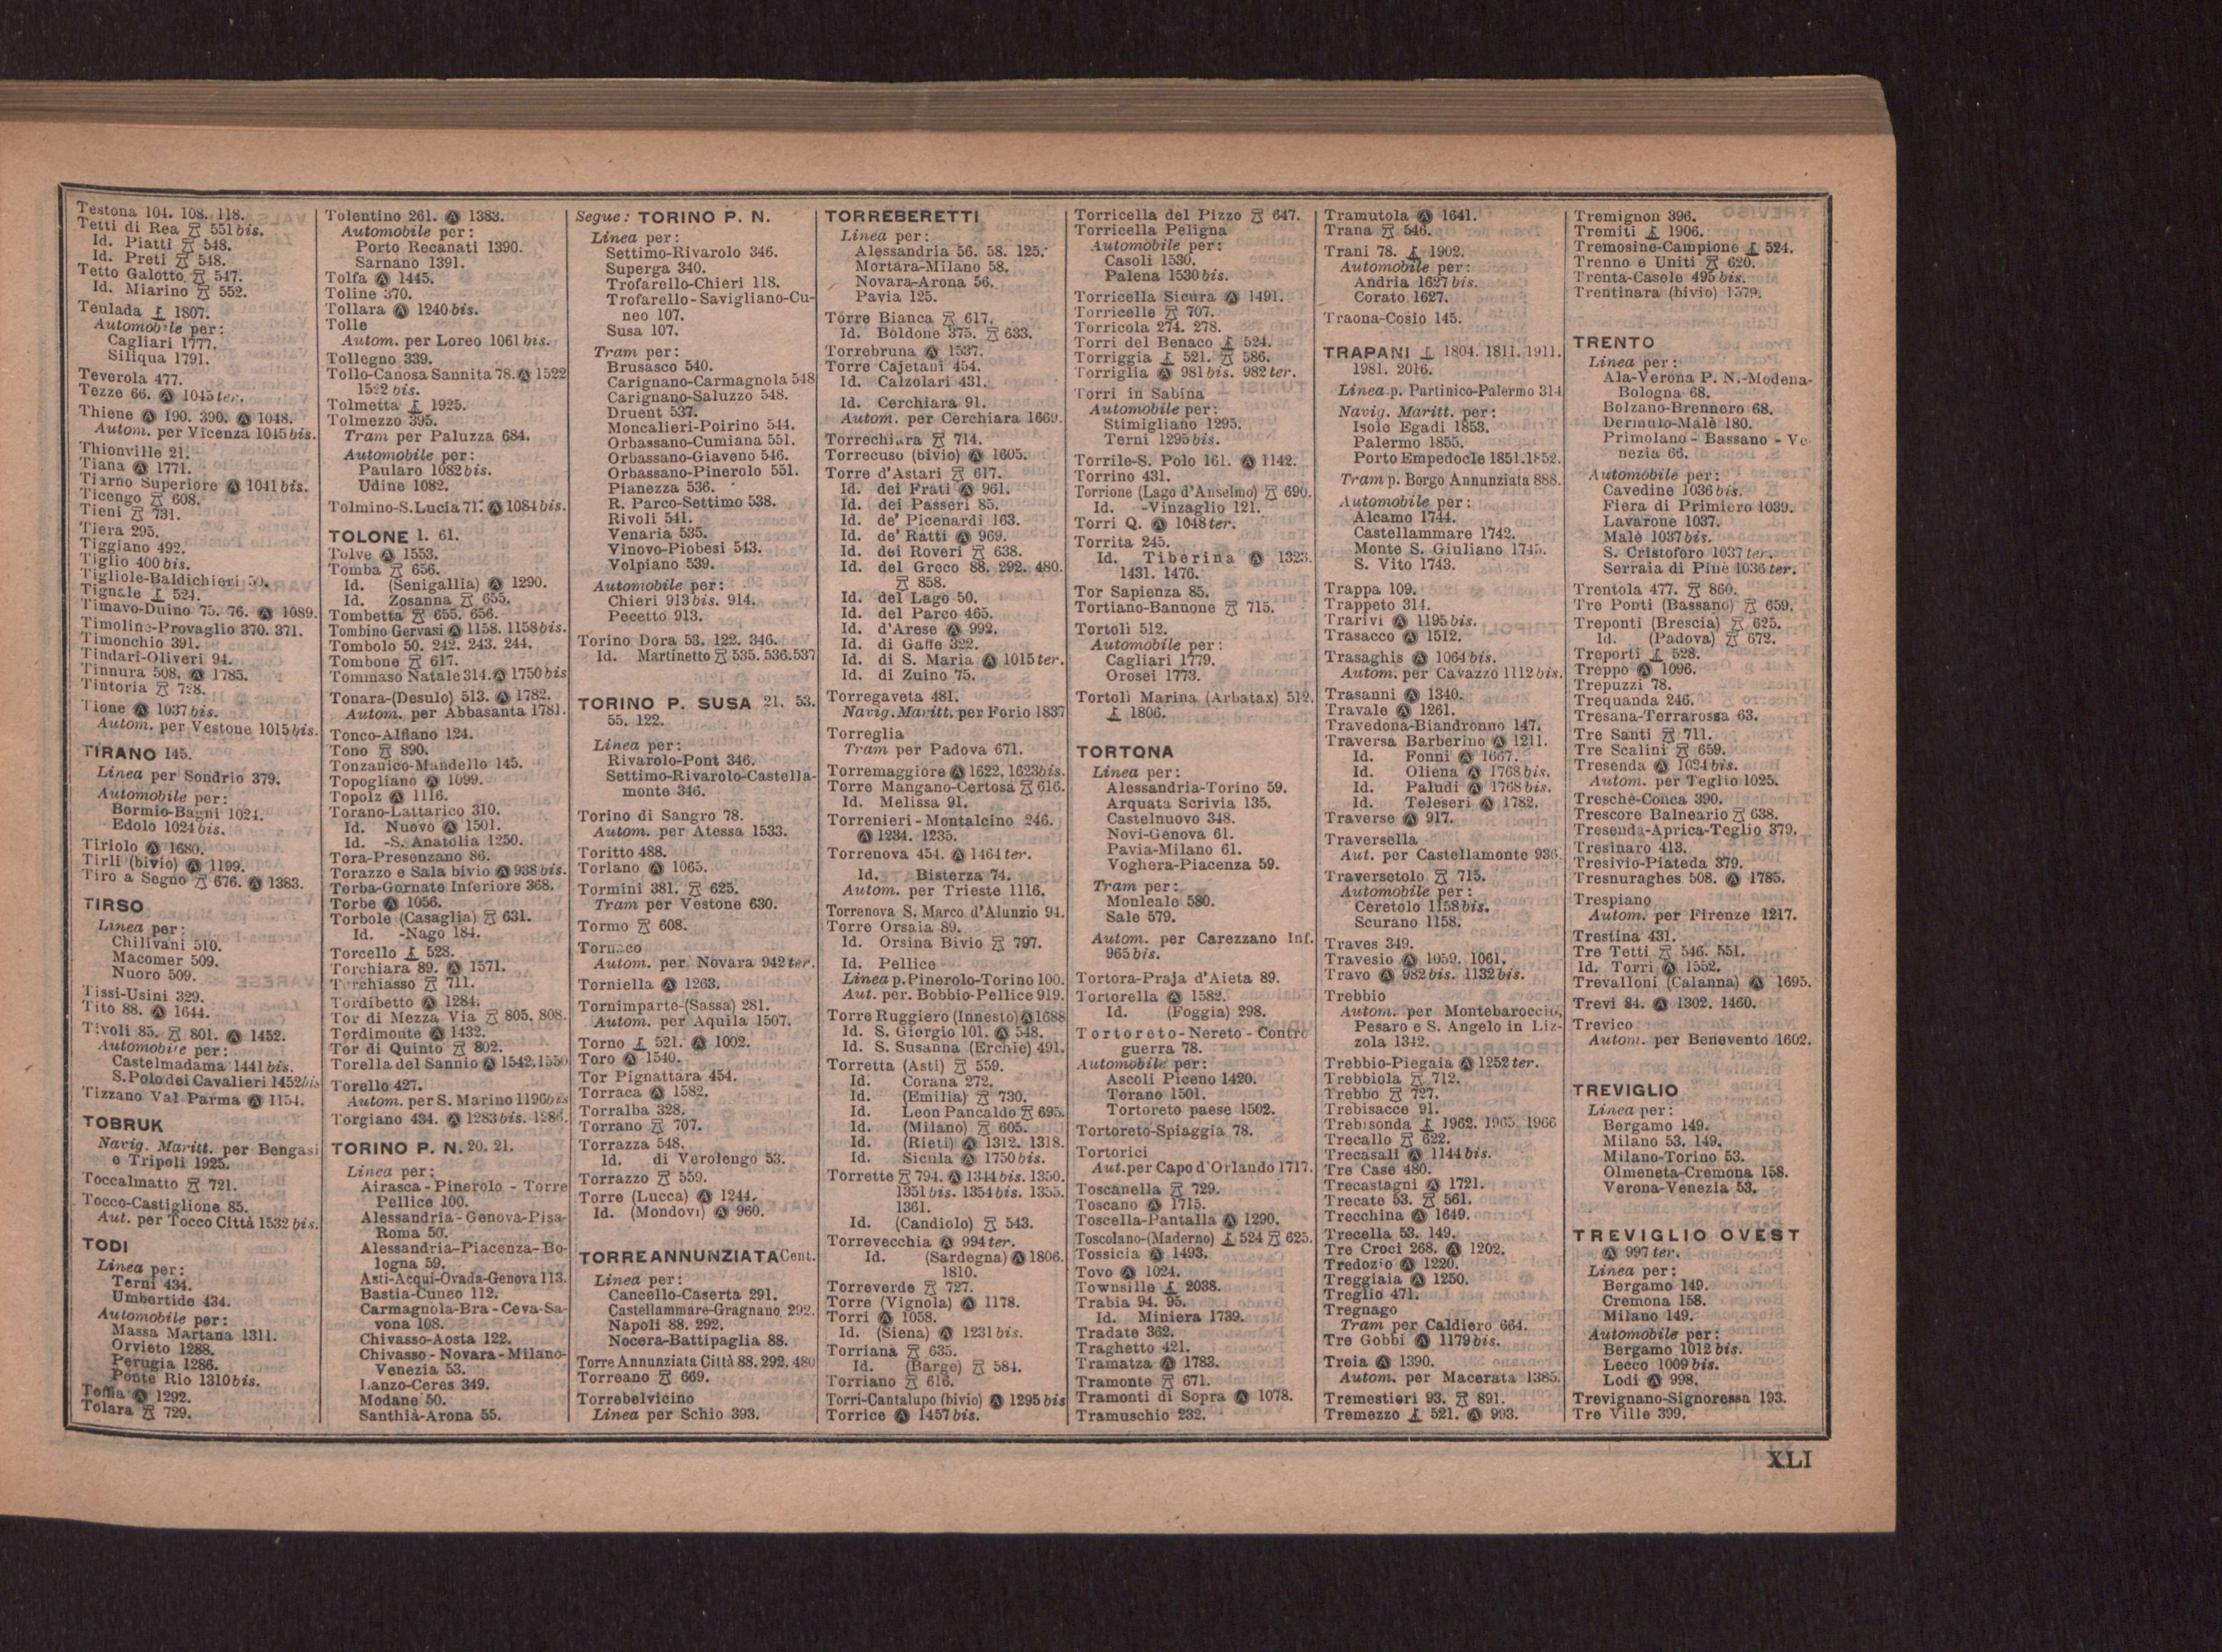 Testona 104. 108. 118.
Tetti di Rea 551 bis.
Id. Piatti 548.
Id. Preti 548.
Tetto Galotto 547.
Id. Miarino 552.
Teulada 1807.
Automobile per:
Cagliari 1777.
Siliqua 1791.
Teverola 477.
Tezze 66. Ⓐ 1045 ter.
Thiene Ⓐ 190. 390. Ⓐ 1048.
Autom. per Vicenza 1045 bis.
Thionville 21.
Tiana Ⓐ 1771.
Tiarno Superiore Ⓐ 1041 bis.
Ticengo 608.
Tieni 731.
Tiera 295.
Tiggiano 492.
Tiglio 400 bis.
Tigliole-Baldichieri 50.
Tignale 524.
Timavo-Duino 75. 76. Ⓐ 1089.
Timoline-Provaglio 370. 371.
Timonchio 391.
Tindari-Oliveri 94.
Tinnura 508. Ⓐ 1785.
Tintoria 728.
Tione Ⓐ 1037 bis.
Autom. per Vestone 1015 bis.
TIRANO 145.
Linea per Sondrio 379.
Automobile per:
Bormio-Bagni 1024.
Edolo 1024 bis.
Tiriolo Ⓐ 1680.
Tirli (bivio) Ⓐ 1199.
Tiro a Segno 676. Ⓐ 1383.
TIRSO
Linea per:
Chilivani 510.
Macomer 509.
Nuoro 509.
Tissi-Usini 329.
Tito 88. Ⓐ 1644.
Tivoli 85. 801. Ⓐ 1452.
Automobile per:
Castelmadama 1441 bis.
S.Polo dei Cavalieri 1452 bis
Tizzano Val Parma Ⓐ 1154.
TOBRUK
Navig. Maritt. per Bengasi
e Tripoli 1925.
Toccalmatto 721.
Tocco-Castiglione 85.
Aut. per Tocco Città 1532 bis.
TODI
Linea per:
Terni 434.
Umbertide 434.
Automobile per:
Massa Martana 1311.
Orvieto 1288.
Perugia 1286.
Ponte Rio 1310 bis.
Toffia Ⓐ 1292.
Tolara 729.
Tolentino 261. Ⓐ 1383.
Automobile per:
Porto Recanati 1390.
Sarnano 1391.
Tolfa Ⓐ 1445.
Toline 370.
Tollara Ⓐ 1240 bis.
Tolle
Autom. per Loreo 1061 bis.
Tollegno 339.
Tollo-Canosa Sannita 78. Ⓐ 1522
1522 bis.
Tolmetta 1925.
Tolmezzo 395.
Tram per Paluzza 684.
Automobile per:
Paularo 1082 bis.
Udine 1082.
Tolmino-S.Lucia 71. Ⓐ 1084 bis.
TOLONE 1. 61.
Tolve Ⓐ 1553.
Tomba 656.
Id. (Senigallia) Ⓐ 1290.
Id. Zosanna 655.
Tombetta 655. 656.
Tombino Gervasi Ⓐ 1158. 1158 bis.
Tombolo 50. 242. 243. 244.
Tombone 617.
Tommaso Natale 314. Ⓐ 1750 bis
Tonara-(Desulo) 513. Ⓐ 1782.
Autom. per Abbasanta 1781.
Tonco-Alfiano 124.
Tono 890.
Tonzanico-Mandello 145.
Topogliano Ⓐ 1099.
Topolz Ⓐ 1116.
Torano-Lattarico 310.
Id. Nuovo Ⓐ 1501.
Id. -S. Anatolia 1250.
Tora-Presenzano 86.
Torazzo e Sala bivio Ⓐ 938 bis.
Torba-Gornate Inferiore 368.
Torbe Ⓐ 1056.
Torbole (Casaglia) 631.
Id. -Nago 184.
Torcello 528.
Torchiara 89. Ⓐ 1571.
Torchiasso 711.
Tordibetto Ⓐ 1284.
Tor di Mezza Via 805. 808.
Tordimonte Ⓐ 1432.
Tor di Quinto 802.
Torella del Sannio Ⓐ 1542. 1550
Torello 427.
Autom. per S. Marino 1196 bis
Torgiano 434. Ⓐ 1283 bis. 1286.
TORINO P. N. 20. 21.
Linea per:
Airasca - Pinerolo - Torre
Pellice 100.
Alessandria - Genova-Pisa-
Roma 50.
Alessandria-Piacenza-Bo-
logna 59.
Asti-Acqui-Ovada-Genova 113.
Bastia-Cuneo 112.
Carmagnola-Bra - Ceva-Sa-
vona 108.
Chivasso-Aosta 122.
Chivasso - Novara - Milano-
Venezia 53.
Lanzo-Ceres 349.
Modane 50.
Santhià-Arona 55.
Segue: TORINO P. N.
Linea per:
Settimo-Rivarolo 346.
Superga 340.
Trofarello-Chieri 118.
Trofarello - Savigliano-Cu-
neo 107.
Susa 107.
Tram per:
Brusasco 540.
Carignano-Carmagnola 548
Carignano-Saluzzo 548.
Druent 537.
Moncalieri-Poirino 544.
Orbassano-Cumiana 551.
Orbassano-Giaveno 546.
Orbassano-Pinerolo 551.
Pianezza 536.
R. Parco-Settimo 538.
Rivoli 541.
Venaria 535.
Vinovo-Piobesi 543.
Volpiano 539.
Automobile per:
Chieri 913 bis. 914.
Pecetto 913.
Torino Dora 53. 122. 346.
Id. Martinetto 535. 536. 537
TORINO P. SUSA 21. 53.
55. 122.
Linea per:
Rivarolo-Pont 346.
Settimo-Rivarolo-Castella-
monte 346.
Torino di Sangro 78.
Autom. per Atessa 1533.
Toritto 488.
Torlano Ⓐ 1065.
Tormini 381. 625.
Tram per Vestone 630.
Tormo 608.
Tornaco
Autom. per Novara 942 ter.
Torniella Ⓐ 1263.
Tornimparte-(Sassa) 281.
Autom. per Aquila 1507.
Torno 521. Ⓐ 1002.
Toro Ⓐ 1540.
Tor Pignattara 454.
Torraca Ⓐ 1582.
Torralba 328.
Torrano 707.
Torrazza 548.
Id. di Verolengo 53.
Torrazzo 559.
Torre (Lucca) Ⓐ 1244.
Id. (Mondovì) Ⓐ 960.
TORREANNUNZIATA Cent.
Linea per:
Cancello-Caserta 291.
Castellammare-Gragnano 292.
Napoli 88. 292.
Nocera-Battipaglia 88.
Torre Annunziata Città 88. 292. 480
Torreano 669.
Torrebelvicino
Linea per Schio 393.
TORREBERETTI
Linea per:
Alessandria 56. 58. 125.
Mortara-Milano 58.
Novara-Arona 56.
Pavia 125.
Torre Bianca 617.
Id. Boldone 375. 633.
Torrebruna Ⓐ 1537.
Torre Cajetani 454.
Id. Calzolari 431.
Id. Cerchiara 91.
Autom. per Cerchiara 1669.
Torrechiara 714.
Torrecuso (bivio) Ⓐ 1605.
Torre d'Astari 617.
Id. dei Frati Ⓐ 961.
Id. dei Passeri 85.
Id. de' Picenardi 163.
Id. de' Ratti Ⓐ 969.
Id. dei Roveri 638.
Id. del Greco 88. 292. 480.
858.
Id. del Lago 50.
Id. del Parco 465.
Id. d'Arese Ⓐ 992.
Id. di Gaffe 322.
Id. di S. Maria Ⓐ 1015 ter.
Id. di Zuino 75.
Torregaveta 481.
Navig. Maritt. per Forio 1837
Torreglia
Tram per Padova 671.
Torremaggiore Ⓐ 1622. 1623 bis.
Torre Mangano-Certosa 616.
Id. Melissa 91.
Torrenieri - Montalcino 246.
Ⓐ 1234. 1235.
Torrenova 454. Ⓐ 1464 ter.
Id. Bisterza 74.
Autom. per Trieste 1116.
Torrenova S. Marco d'Alunzio 94.
Torre Orsaia 89.
Id. Orsina Bivio 797.
Id. Pellice
Linea p. Pinerolo-Torino 100.
Aut. per. Bobbio-Pellice 919.
Torre Ruggiero (Innesto) Ⓐ 1688
Id. S. Giorgio 101. Ⓐ 548.
Id. S. Susanna (Erchie) 491.
Torretta (Asti) 559.
Id. Corana 272.
Id. (Emilia) 730.
Id. Leon Pancaldo 695.
Id. (Milano) 605.
Id. (Rieti) Ⓐ 1312. 1318.
Id. Sicula Ⓐ 1750 bis.
Torrette 794. Ⓐ 1344 bis. 1350.
1351 bis. 1354 bis. 1355.
1361.
Id. (Candiolo) 543.
Torrevecchia Ⓐ 994 ter.
Id. (Sardegna) Ⓐ 1806.
1810.
Torreverde 727.
Torre (Vignola) Ⓐ 1178.
Torri Ⓐ 1058.
Id. (Siena) Ⓐ 1231 bis.
Torriana 635.
Id. (Barge) 584.
Torriano 616.
Torri-Cantalupo (bivio) Ⓐ 1295 bis
Torrice Ⓐ 1457 bis.
Torricella del Pizzo 647.
Torricella Peligna
Automobile per:
Casoli 1530.
Palena 1530 bis.
Torricella Sicura Ⓐ 1491.
Torricelle 707.
Torricola 274. 278.
Torri del Benaco 524.
Torriggia 521. 586.
Torriglia Ⓐ 981 bis. 982 ter.
Torri in Sabina
Automobile per:
Stimigliano 1295.
Terni 1295 bis.
Torrile-S. Polo 161. Ⓐ 1142.
Torrino 431.
Torrione (Lago d'Anselmo) 690.
Id. -Vinzaglio 121.
Torri Q. Ⓐ 1048 ter.
Torrita 245.
Id. Tiberina Ⓐ 1323.
1431. 1476.
Tor Sapienza 85.
Tortiano-Bannone 715.
Tortolì 512.
Automobile per:
Cagliari 1779.
Orosei 1773.
Tortolì Marina (Arbatax) 512.
1806.
TORTONA
Linea per:
Alessandria-Torino 59.
Arquata Scrivia 135.
Castelnuovo 348.
Novi-Genova 61.
Pavia-Milano 61.
Voghera-Piacenza 59.
Tram per:
Monleale 580.
Sale 579.
Autom. per Carezzano Inf.
965 bis.
Tortora-Praja d'Aieta 89.
Tortorella Ⓐ 1582.
Id. (Foggia) 298.
Tortoreto - Nereto - Contro
guerra 78.
Automobile per:
Ascoli Piceno 1420.
Torano 1501.
Tortoreto paese 1502.
Tortoreto-Spiaggia 78.
Tortorici
Aut. per Capo d'Orlando 1717.
Toscanella 729.
Toscano Ⓐ 1715.
Toscella-Pantalla Ⓐ 1290.
Toscolano-(Maderno) 524 625.
Tossicia Ⓐ 1493.
Tovo Ⓐ 1024.
Townsille 2038.
Trabia 94. 95.
Id. Miniera 1739.
Tradate 362.
Traghetto 421.
Tramatza Ⓐ 1783.
Tramonte 671.
Tramonti di Sopra Ⓐ 1078.
Tramuschio 232.
Tramutola Ⓐ 1641.
Trana 546.
Trani 78. 1902.
Automobile per:
Andria 1627 bis.
Corato 1627.
Traona-Cosio 145.
TRAPANI 1804. 1811. 1911.
1981. 2016.
Linea p. Partinico-Palermo 314
Navig. Maritt. per:
Isole Egadi 1853.
Palermo 1855.
Porto Empedocle 1851. 1852.
Tram p. Borgo Annunziata 888.
Automobile per:
Alcamo 1744.
Castellammare 1742.
Monte S. Giuliano 1745.
S. Vito 1743.
Trappa 109.
Trappeto 314.
Trarivi Ⓐ 1195 bis.
Trasacco Ⓐ 1512.
Trasaghis Ⓐ 1064 bis.
Autom. per Cavazzo 1112 bis.
Trasanni Ⓐ 1340.
Travale Ⓐ 1261.
Travedona-Biandronno 147.
Traversa Barberino Ⓐ 1211.
Id. Fonni Ⓐ 1667.
Id. Oliena Ⓐ 1768 bis.
Id. Paludi Ⓐ 1768 bis.
Id. Teleseri Ⓐ 1782.
Traverse Ⓐ 917.
Traversella
Aut. per Castellamonte 936.
Traversetolo 715.
Automobile per:
Ceretolo 1158 bis.
Scurano 1158.
Traves 349.
Travesio Ⓐ 1059. 1061.
Travo Ⓐ 982 bis. 1132 bis.
Trebbio
Autom. per Montebaroccio,
Pesaro e S. Angelo in Liz-
zola 1342.
Trebbio-Piegaia Ⓐ 1252 ter.
Trebbiola 712.
Trebbo 727.
Trebisacce 91.
Trebisonda 1962. 1965. 1966
Trecallo 622.
Trecasali Ⓐ 1144 bis.
Tre Case 480.
Trecastagni Ⓐ 1721.
Trecate 53. 561.
Trecchina Ⓐ 1649.
Trecella 53. 149.
Tre Croci 268. Ⓐ 1202.
Tredozio Ⓐ 1220.
Treggiaia Ⓐ 1250.
Treglio 471.
Tregnago
Tram per Caldiero 664.
Tre Gobbi Ⓐ 1179 bis.
Treia Ⓐ 1390.
Autom. per Macerata 1385.
Tremestieri 93. 891.
Tremezzo 521. Ⓐ 993.
Tremignon 396.
Tremiti 1906.
Tremosine-Campione 524.
Trenno e Uniti 620.
Trenta-Casole 495 bis.
Trentinara (bivio) 1579.
TRENTO
Linea per:
Ala-Verona P. N.-Modena-
Bologna 68.
Bolzano-Brennero 68.
Dermulo-Malè 180.
Primolano - Bassano - Ve
nezia 66.
Automobile per:
Cavedine 1036 bis.
Fiera di Primiero 1039.
Lavarone 1037.
Malè 1037 bis.
S. Cristoforo 1037 ter.
Serraia di Pinè 1036 ter.
Trentola 477. 860.
Tre Ponti (Bassano) 659.
Treponti (Brescia) 625.
Id. (Padova) 672.
Treporti 528.
Treppo Ⓐ 1096.
Trepuzzi 78.
Trequanda 246.
Tresana-Terrarossa 63.
Tre Santi 711.
Tre Scalini 659.
Tresenda Ⓐ 1024 bis.
Autom. per Teglio 1025.
Treschè-Conca 390.
Trescore Balneario 638.
Tresenda-Aprica-Teglio 379.
Tresinaro 413.
Tresivio-Piateda 379.
Tresnuraghes 508. Ⓐ 1785.
Trespiano
Autom. per Firenze 1217.
Trestina 431.
Tre Tetti 546. 551.
Id. Torri Ⓐ 1552.
Trevalloni (Calanna) Ⓐ 1695.
Trevi 84. Ⓐ 1302. 1460.
Trevico
Autom. per Benevento 1602.
TREVIGLIO
Linea per:
Bergamo 149.
Milano 53. 149.
Milano-Torino 53.
Olmeneta-Cremona 158.
Verona-Venezia 53.
TREVIGLIO OVEST
Ⓐ 997 ter.
Linea per:
Bergamo 149.
Cremona 158.
Milano 149.
Automobile per:
Bergamo 1012 bis.
Lecco 1009 bis.
Lodi Ⓐ 998.
Trevignano-Signoressa 193.
Tre Ville 399.
XLI